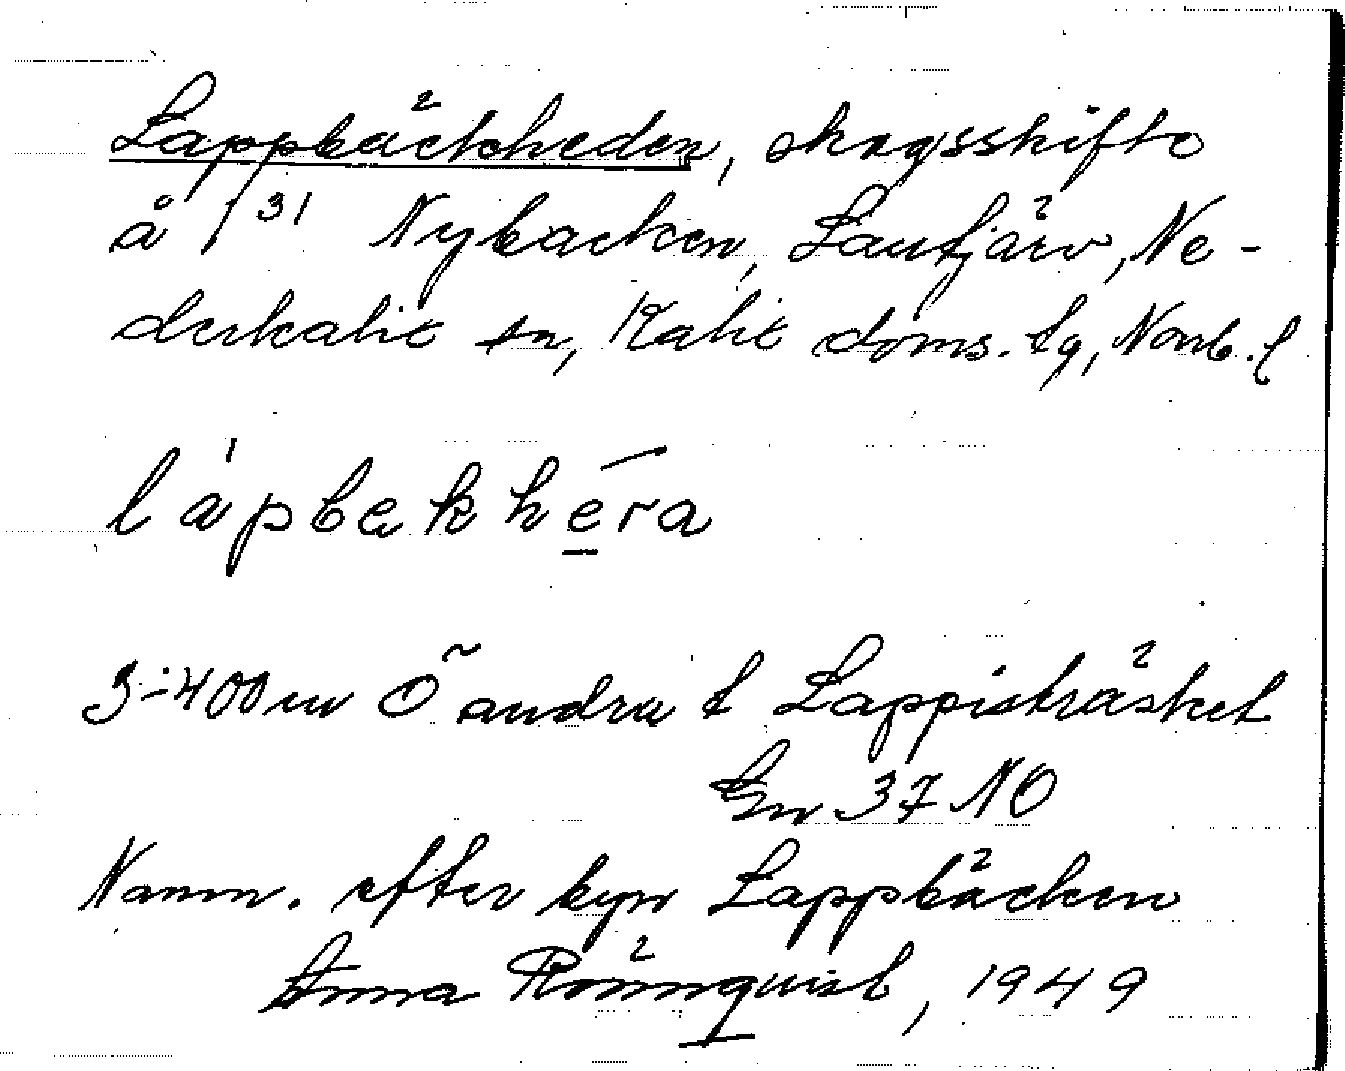 Lappbäckheden, skogsskifte
å 1/31 Nybacken, Lantjärv, Ne-
derkalix sn, Kalix doms. tg, Norrb. l
lápbekhéra
3-400 m Ö andra t Lappisträsket
Gn 37 NO
Namn. efter byn Lappbäcken
Anna Rönnquist, 1949